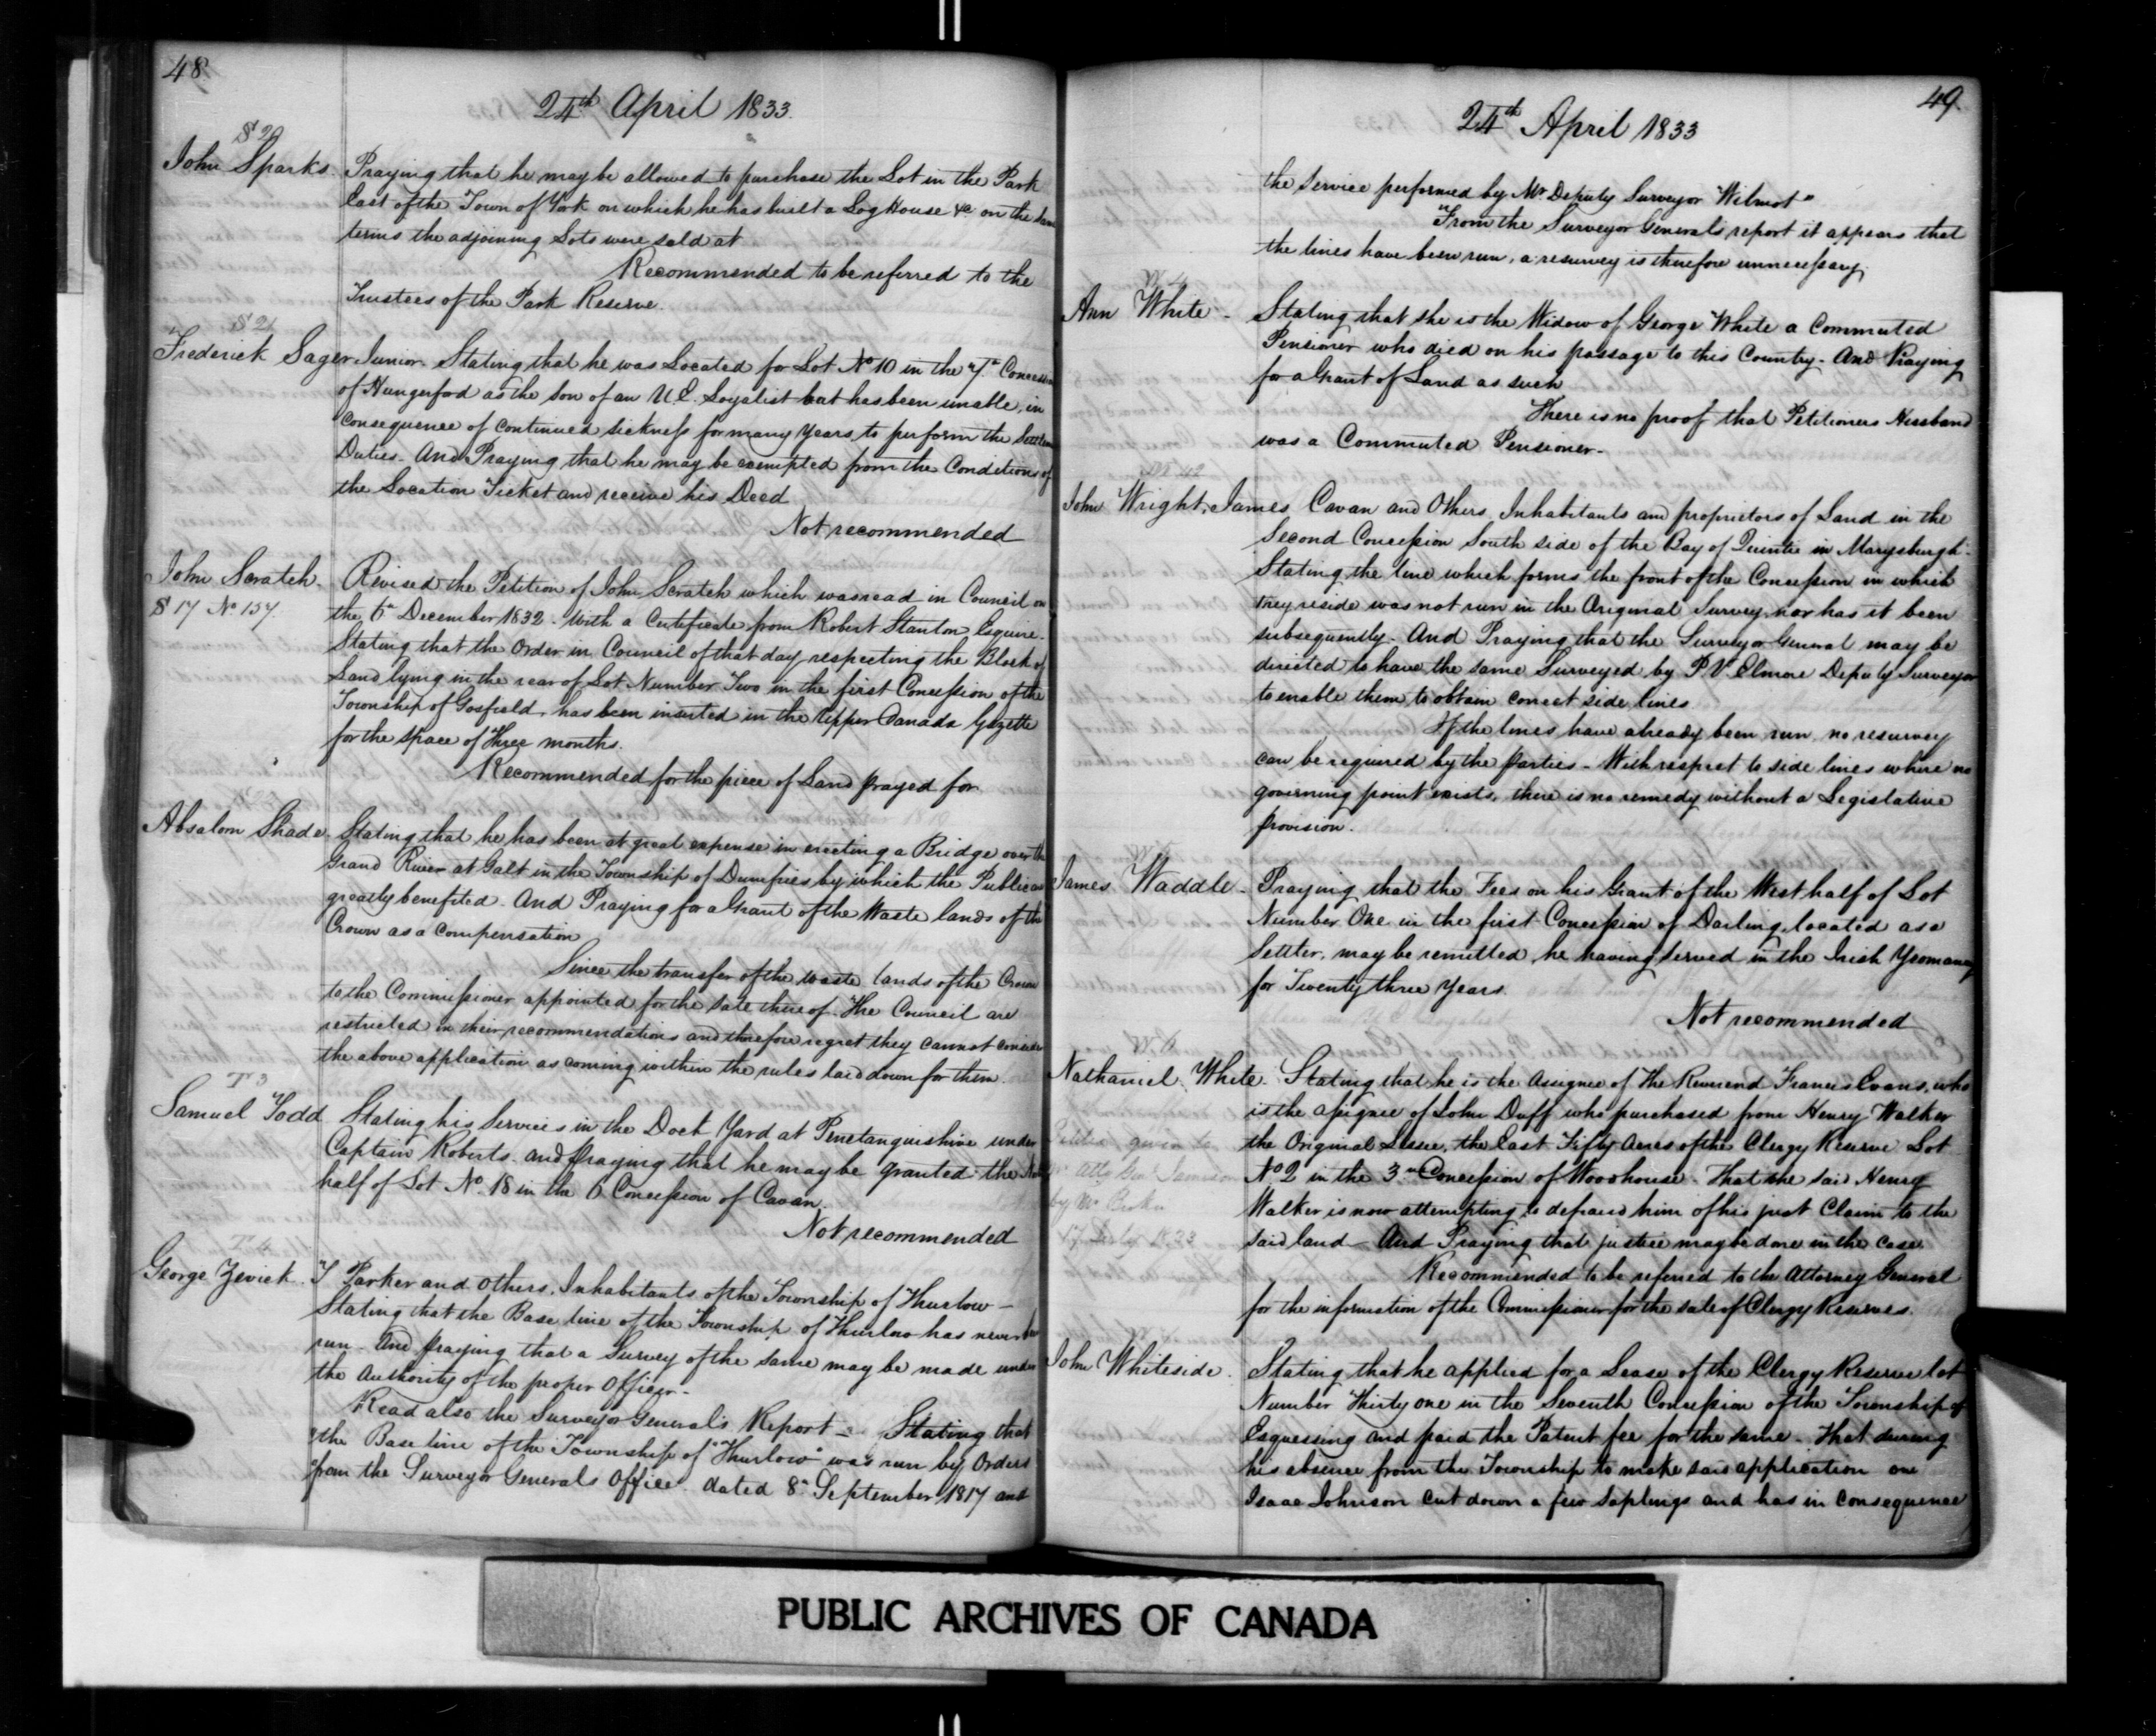 48
24th April 1833.
S 20
John Sparks. Praying that he may be allowed to purchase the Lot in the Park
East of the Town of York on which he has built a Log House &c on the same
terms the adjoining Lots were sold at
Recommended to be referred to the
Trustees of the Park Reserve.
S 21
Frederick Sager Junior. Stating that he was Located for Lot No 10 in the 7th Concession
of Hungerford as the son of an U.E. Loyalist but has been unable, in
consequence of continued sickness for many years, to perform the Settlement
Duties. And Praying that he may be exempted from the Conditions of
the Location Ticket and receive his Deed
Not recommended
John Scratch. Revised the Petition of John Scratch which was read in Council on
S 17 No 157. the 6th December 1832. With a Certificate from Robert Stanton Esquire.
Stating that the Order in Council of that day respecting the Block of
Land lying in the rear of Lot Number Two in the first Concession of the
Township of Gosfield, has been inserted in the Upper Canada Gazette
for the space of Three months.
Recommended for the piece of Land prayed for.
Absalom Shade. Stating that he has been at great expense in erecting a Bridge over the
Grand River at Galt in the Township of Dumfries by which the Public are
greatly benefited. And Praying for a Grant of the Waste lands of the
Crown as a compensation
Since the transfer of the waste lands of the Crown
to the Commissioner appointed for the sale thereof. The Council are
restricted in their recommendations and therefore regret they cannot consider
the above application as coming within the rules laid down for them.
T 3
Samuel Todd Stating his Services in the Dock Yard at Penetanguishine under
Captain Roberts. and praying that he may be granted the
half of Lot No. 18 in the 6 Concession of Cavan.
Not recommended
T 4
George Zevick. T Parker and others. Inhabitants of the Township of Thurlow—
Stating that the Base line of the Township of Thurlow has never been
run. And praying that a Survey of the same may be made under
the Authority of the proper Officer—
Read also the Surveyor Generals Report— Stating that
"the Base line of the Township of "Thurlow" was run by Orders
"from the Surveyor Generals Office. dated 8th September 1817 and
49.
24th April 1833
the service performed by Mr Deputy Surveyor Wilmot"
"From the Surveyor Generals report it appears that
the lines have been run, a resurvey is therefore unnecessary.
W 4
Ann White. Stating that she is the Widow of George White a Commuted
Pensioner who died on his passage to this Country. And Praying
for a Grant of Land as such
There is no proof that Petitioners Husband
was a Commuted Pensioner.
John Wright, James Cavan and Others. Inhabitants and proprietors of Land in the
Second Concession South side of the Bay of Quintie in Marysburgh.
Stating the line which forms the front of the Concession in which
they reside was not run in the Original Survey, nor has it been
subsequently. And Praying that the Surveyor General may be
directed to have the same Surveyed by P V Elmore Deputy Surveyor
to enable them to obtain correct side lines
If the lines have already been run no resurvey
can be required by the parties. With respect to side lines where no
governing point exists, there is no remedy without a Legislative
provision.
James Waddle. Praying that the Fees on his Grant of the West half of Lot
Number One in the first Concession of Darling, located as a
Settler, may be remitted, he having served in the Irish Yeomanry
for Twenty three Years.
Not recommended
Nathaniel White. Stating that he is the Assignee of The Reverend Francis Evans, who
is the assignee of John Duff who purchased from Henry Walker
the Original Lessee, the East Fifty Acres of the Clergy Reserve Lot
No 2 in the 3rd Concession of Woodhouse. That the said Henry
Walker is now attempting to defraud him of his just Claim to the
said land— And Praying that justice may be done in the case.
Petition given to
Atty Genl Jameson
by Mr
17 July 1833
Recommended to be referred to the Attorney General
for the information of the Commissioner for the sale of Clergy Reserves.
John Whiteside. Stating that he applied for a Lease of the Clergy Reserve lot
Number Thirty one in the Seventh Concession of the Township of
Esquessing and paid the Patent fee for the same. That during
his absence from the Township to make said application one
Isaac Johnson cut down a few saplings and has in consequence
PUBLIC ARCHIVES OF CANADA